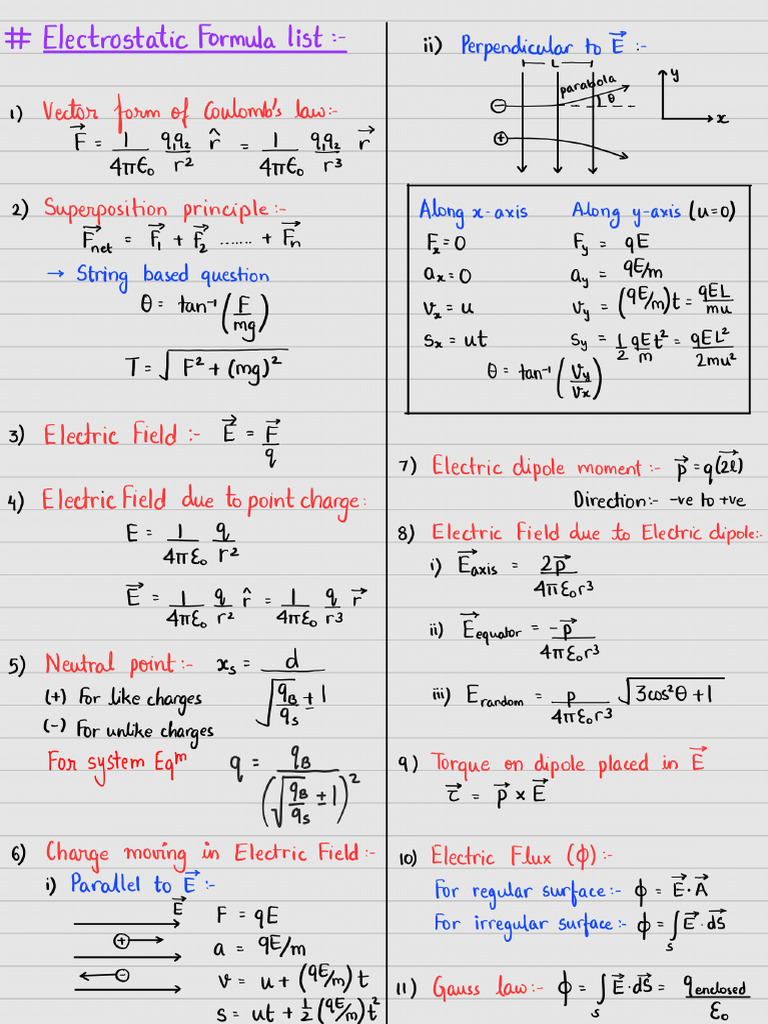 # Electrostatic Formula list :-
1) Vector form of Coulomb's law:-
F⃗ = 1/4πϵ₀ q₁q₂/r² r̂ = 1/4πϵ₀ q₁q₂/r³ r⃗
2) Superposition principle:-
F⃗net = F⃗₁ + F⃗₂ ....... + F⃗n
→ String based question
θ = tan⁻¹(F/mg)
T = √(F² + (mg)²)
3) Electric Field :- E⃗ = F⃗/q
4) Electric Field due to point charge:
E = 1/4πε₀ q/r²
E⃗ = 1/4πε₀ q/r² r̂ = 1/4πε₀ q/r³ r⃗
5) Neutral point :- xs = d/(√(qB/qs) ± 1)
(+) For like charges
(-) For unlike charges
For system Eqᵐ q = qB/(√(qB/qs) ± 1)²
6) Charge moving in Electric Field:-
i) Parallel to E⃗ :-
E⃗
+
-
F = qE
a = qE/m
v = u + (qE/m) t
s = ut + 1/2 (qE/m) t²
ii) Perpendicular to E⃗ :-
L
parabola
θ
-
+
y
x
Along x-axis
Fx = 0
ax = 0
vx = u
sx = ut
Along y-axis (u=0)
Fy = qE
ay = qE/m
vy = (qE/m)t = qEL/mu
sy = 1/2 qE/m t² = qEL²/2mu²
θ = tan⁻¹(vy/vx)
7) Electric dipole moment :- p⃗ = q(2l⃗)
Direction:- -ve to +ve
8) Electric Field due to Electric dipole:-
i) E⃗axis = 2p⃗/4πε₀r³
ii) E⃗equator = -p⃗/4πε₀r³
iii) Erandom = p/4πε₀r³ √(3cos²θ + 1)
9) Torque on dipole placed in E⃗
τ⃗ = p⃗ × E⃗
10) Electric Flux (ϕ) :-
For regular surface:- ϕ = E⃗ · A⃗
For irregular surface:- ϕ = ∫s E⃗ · dS⃗
11) Gauss law:- ϕ = ∫s E⃗ · dS⃗ = q enclosed/ε₀